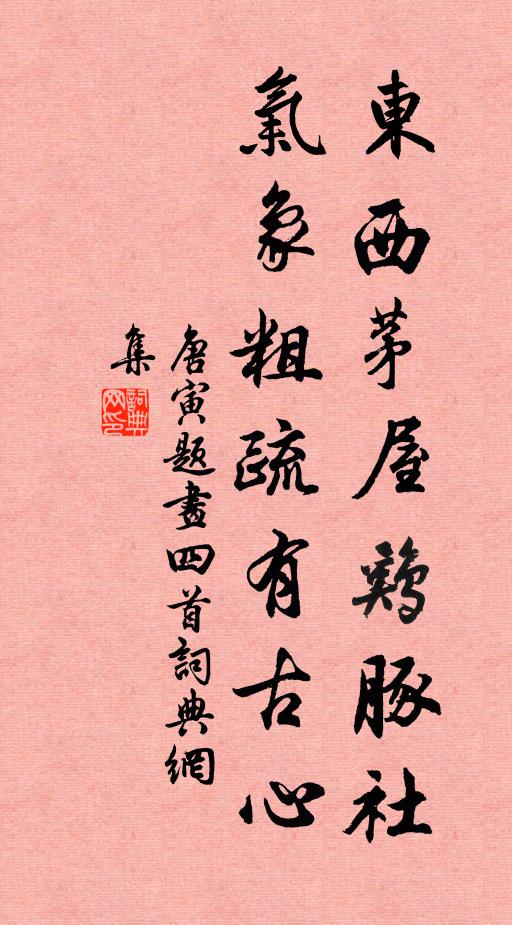 東西茅屋鷄豚社
氣象粗疏有古心
唐寅題畫四首詞典網
集
詞典
网印